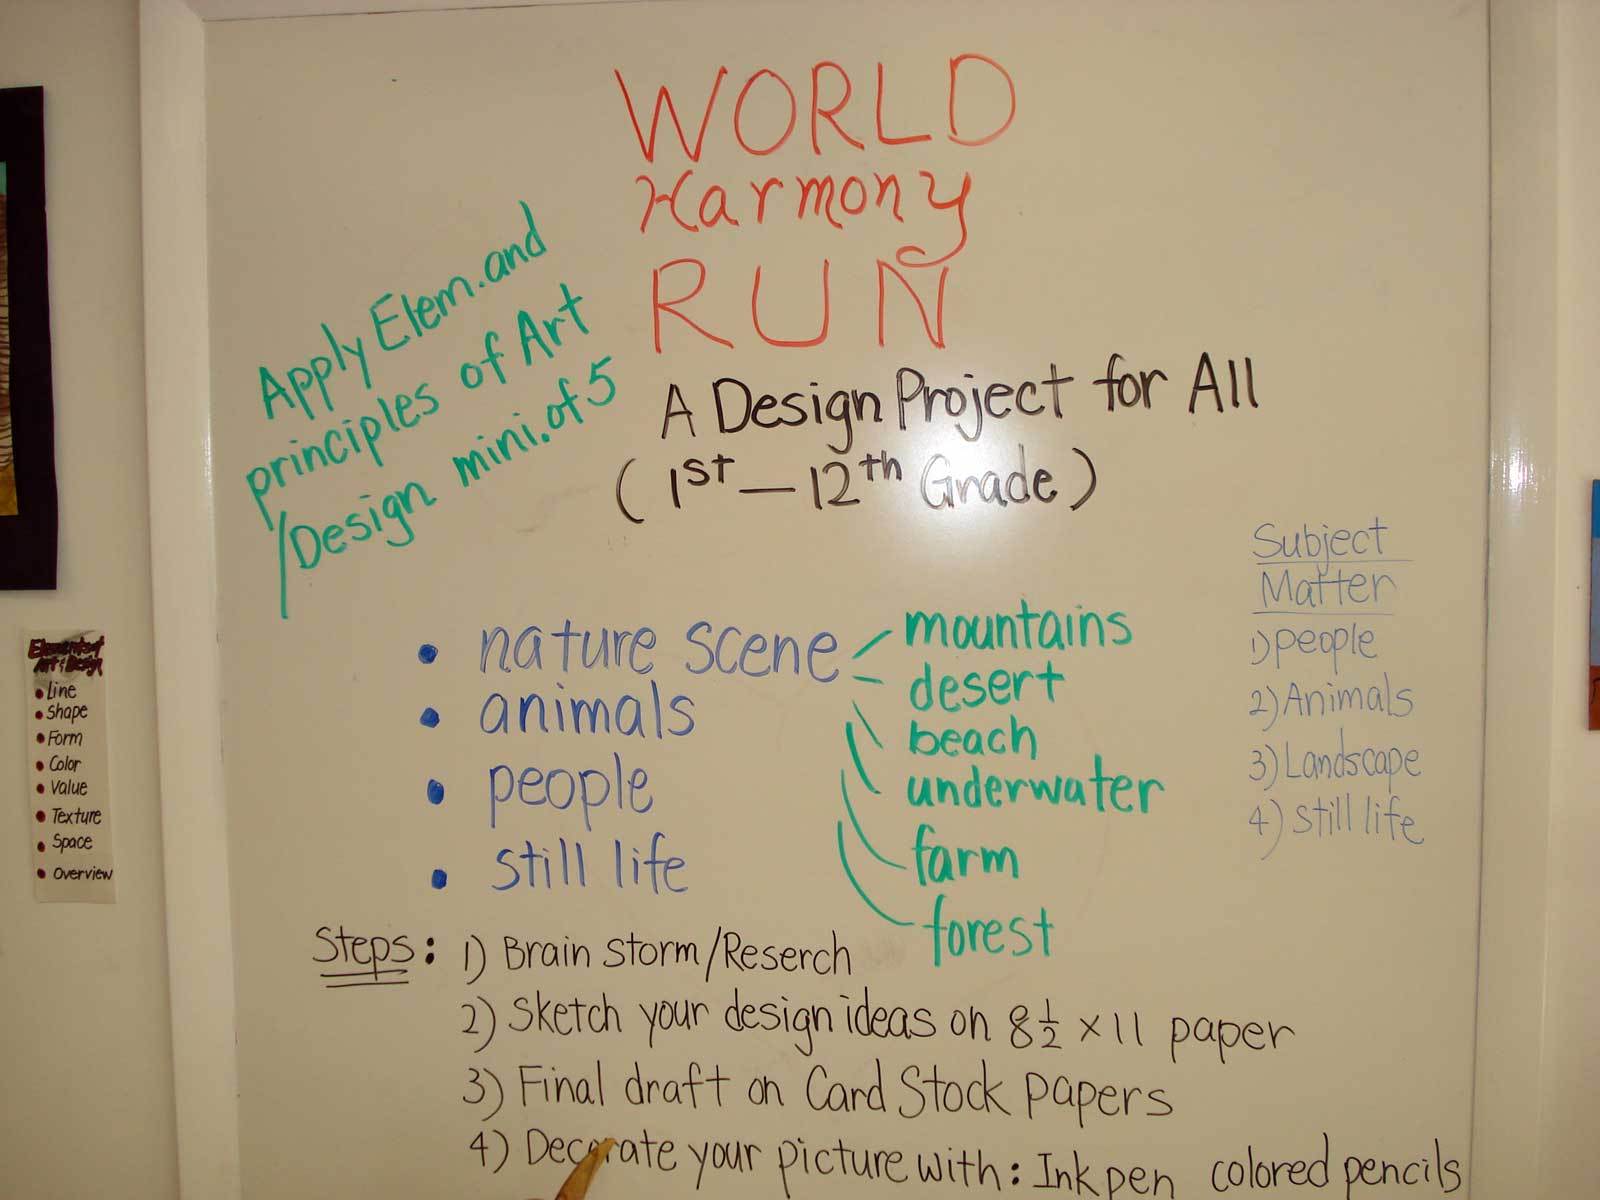 WORLD
Harmony
RUN
A Design Project for All
(1st – 12th Grade)
Apply Elem. and
principles of Art
/Design mini. of 5
• nature scene
• animals
• people
• still life
mountains
desert
beach
underwater
farm
forest
Subject
Matter
1) people
2) Animals
3) Landscape
4) still life
Steps: 1) Brain storm/Reserch
2) Sketch your design ideas on 8 1/2 x 11 paper
3) Final draft on Card Stock papers
4) Decorate your picture with: Ink pen colored pencils
Elements of
Art & Design
• Line
• Shape
• Form
• Color
• Value
• Texture
• Space
• Overview